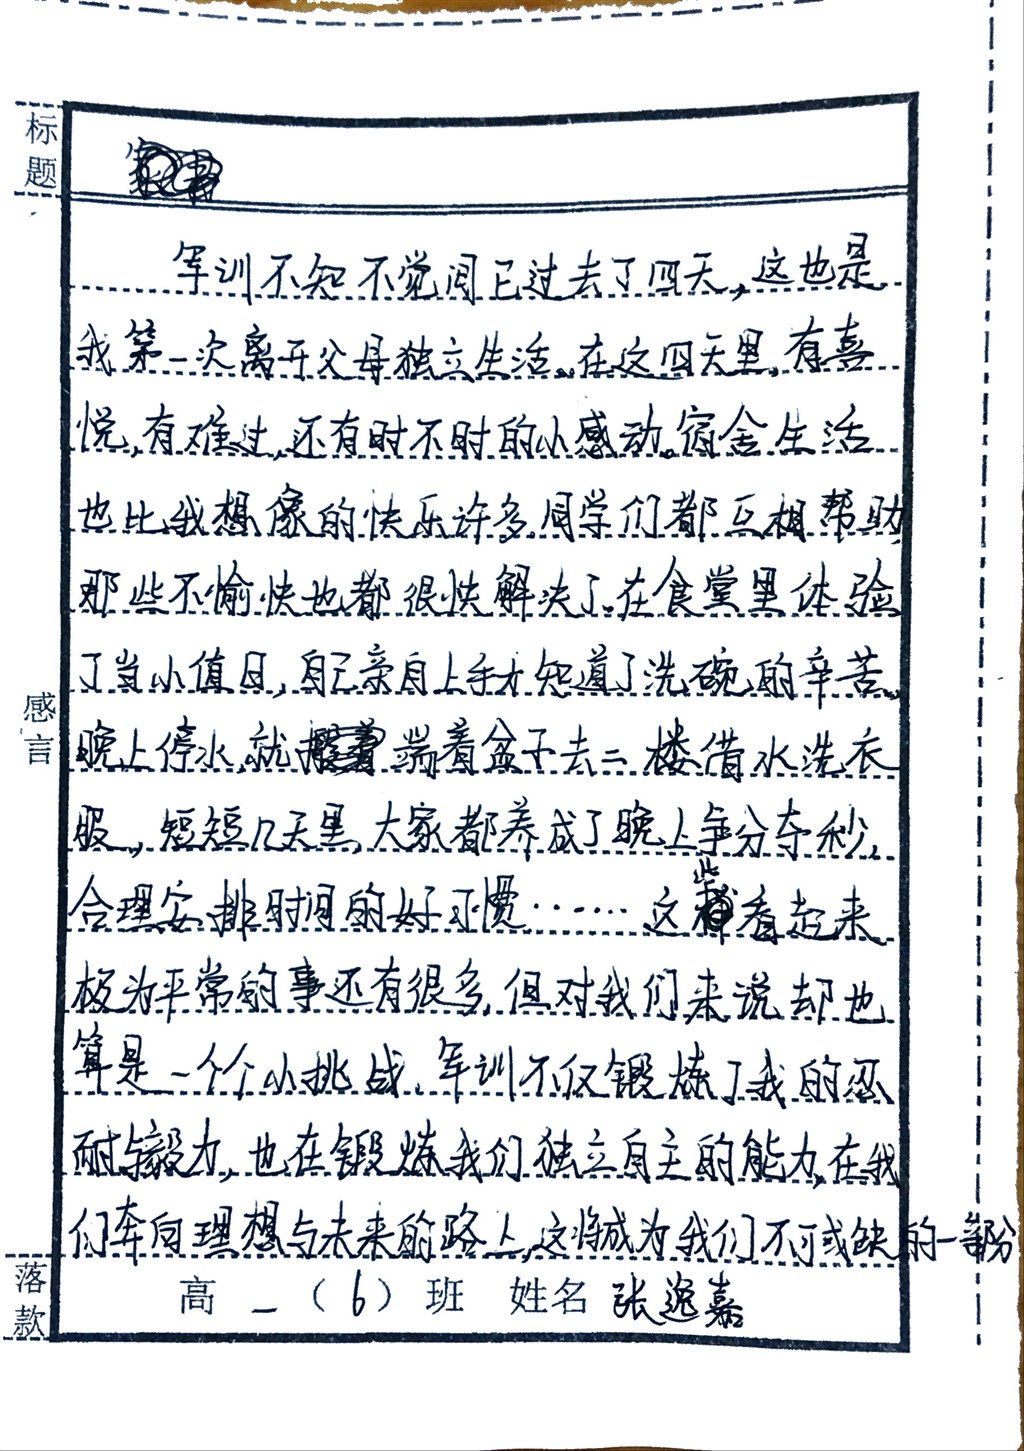 标题
军训不知不觉间已过去了四天，这也是
我第一次离开父母独立生活。在这四天里，有喜
悦，有难过，还有时不时的小感动。宿舍生活
也比我想像的快乐许多，同学们都互相帮助，
那些不愉快也都很快解决了。在食堂里体验
了当小值日，自己亲自上手才知道了洗碗的辛苦。
感言
晚上停水，就端着盆子去二楼借水洗衣
服，短短几天里，大家都养成了晚上争分夺秒，
合理安排时间的好习惯……这些看起来
极为平常的事还有很多，但对我们来说却也
算是一个个小挑战。军训不仅锻炼了我的忍
耐与毅力，也在锻炼我们独立自主的能力，在我
们奔向理想与未来的路上，这将成为我们不可或缺的一部分
落款
高一（6）班 姓名 张逸嘉